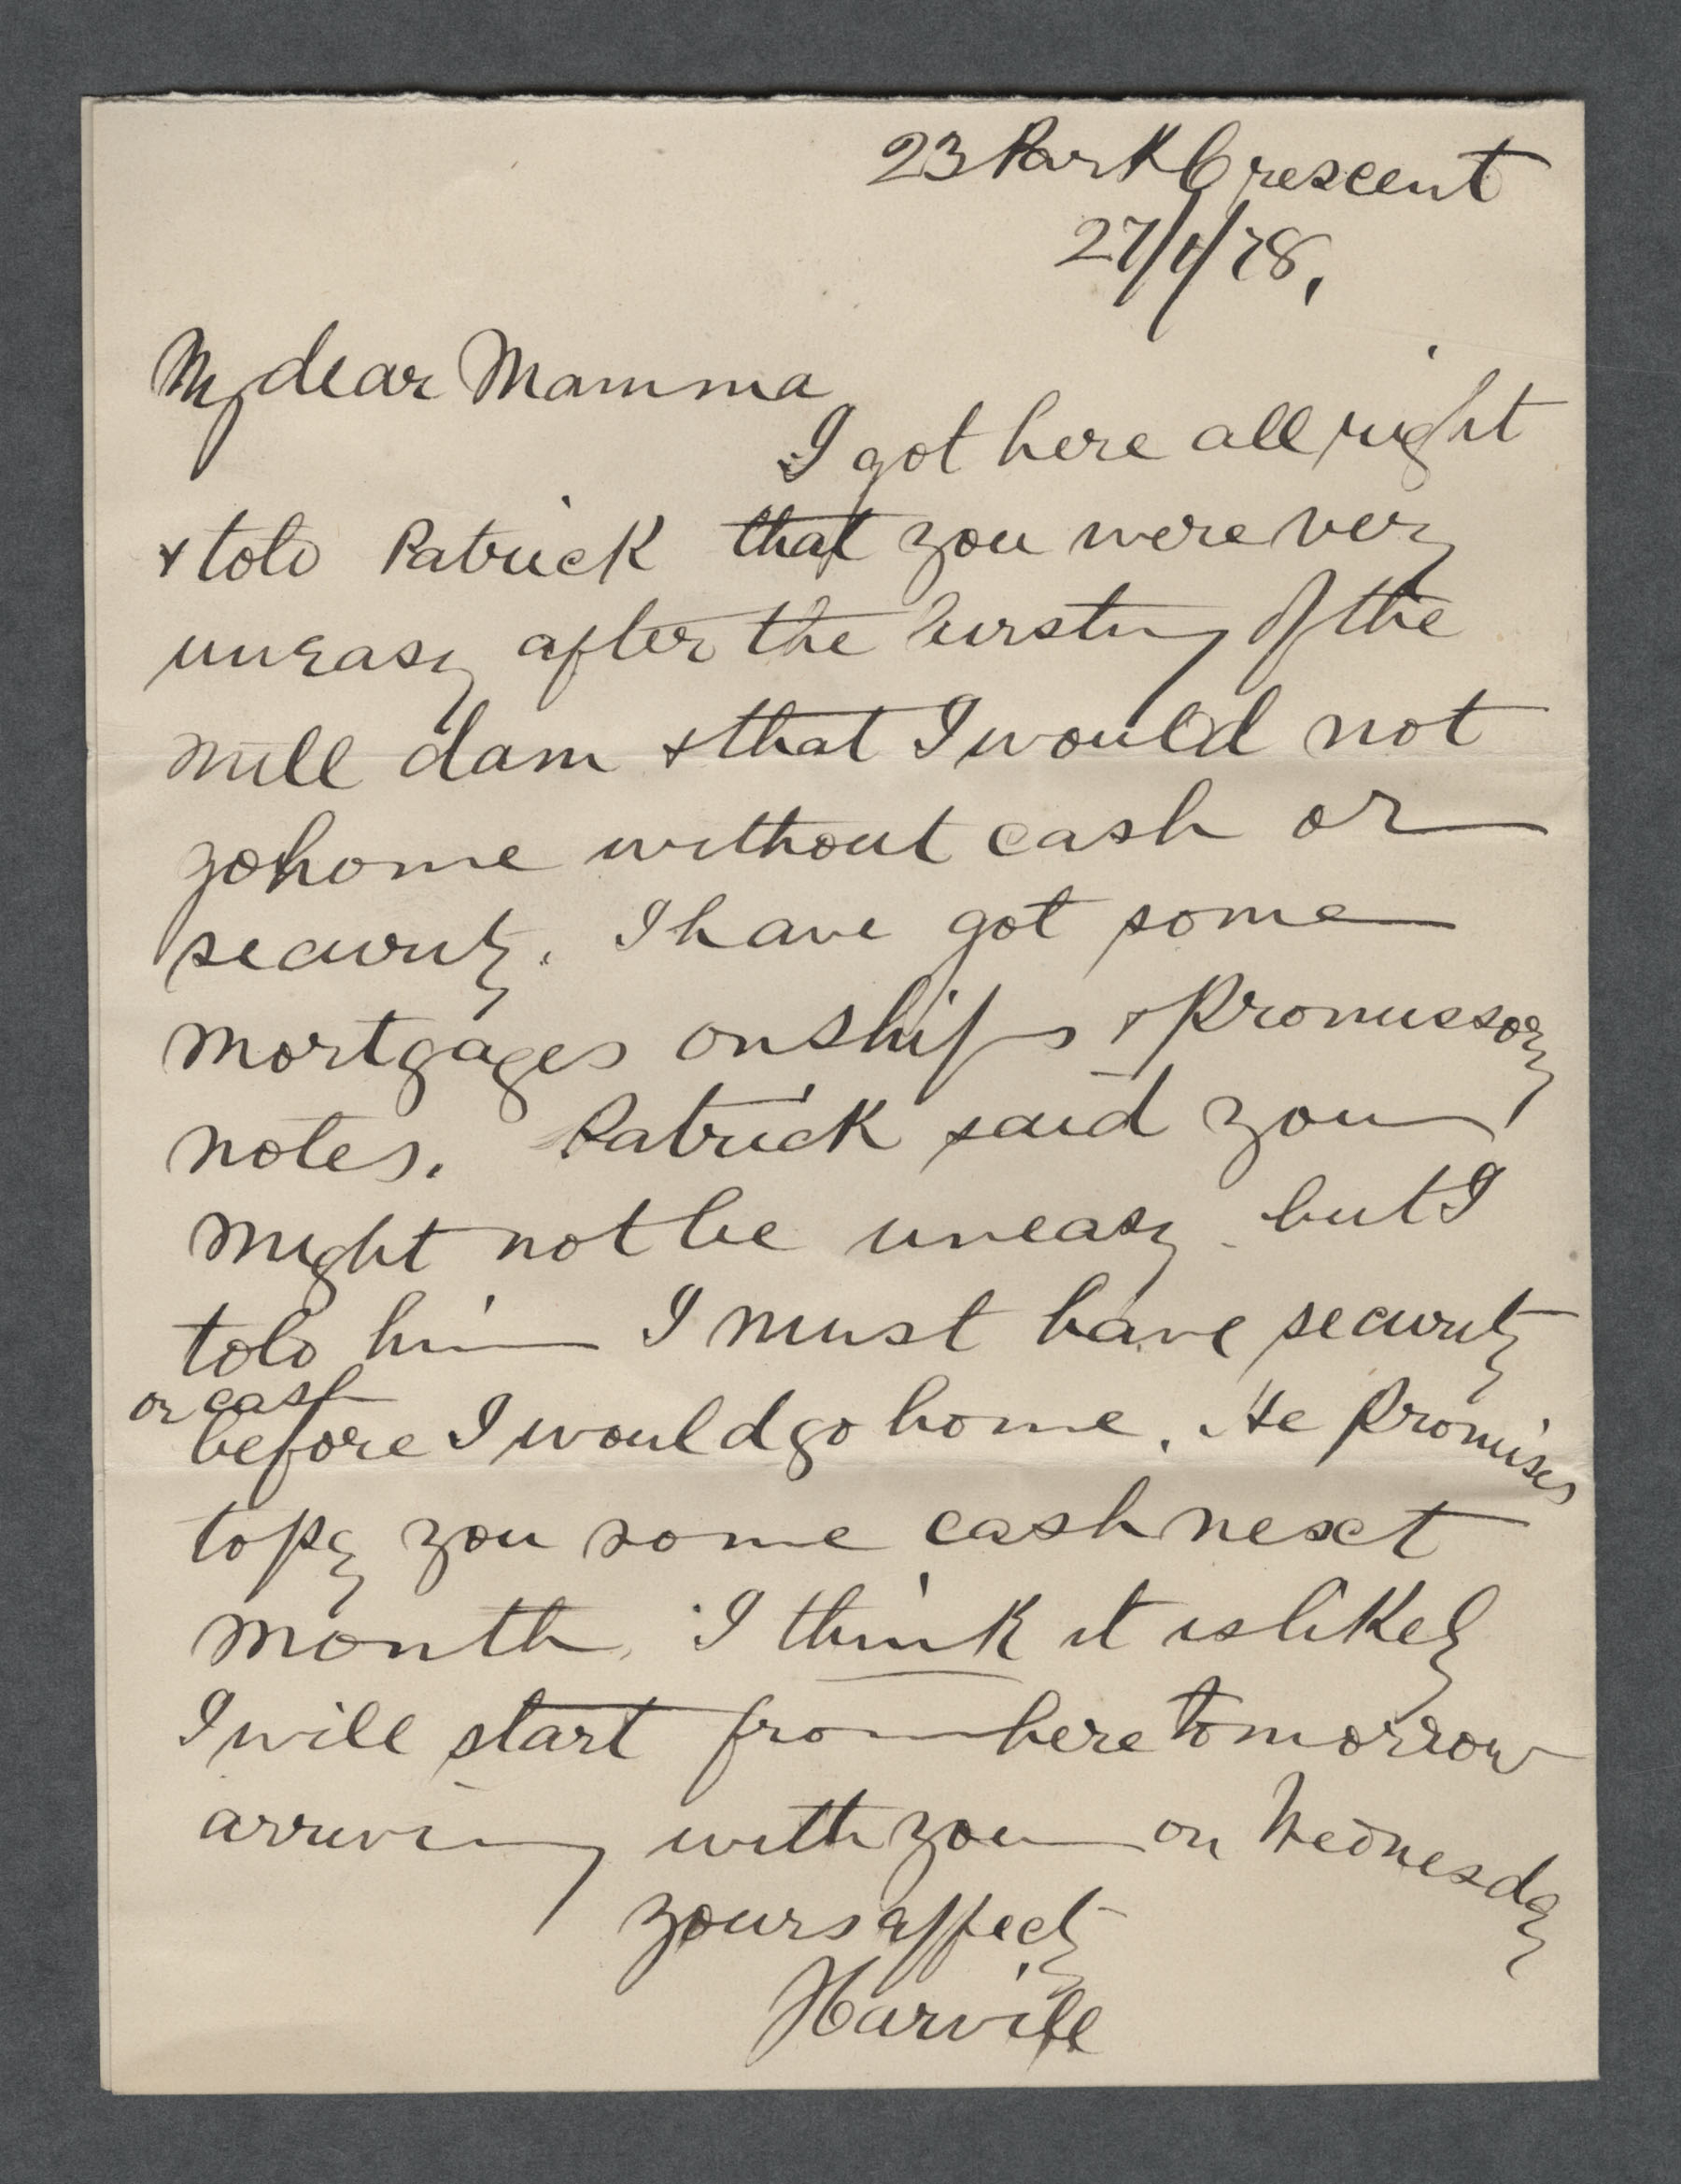 23 Park Crescent
27/1/78,
My dear Mamma
I got here all right
& told Patrick that you were very
uneasy after the bursting of the
mill dam & that I would not
go home without cash or
security. I have got some
mortgages on ships & Promissory
notes. Patrick said you
might not be uneasy but I
told him I must have security
or cash
before I would go home. He Promises
to pay you some cash next
month. I think it is likely
I will start from here tomorrow
arriving with you on Wednesday
yours affecty
Harvile